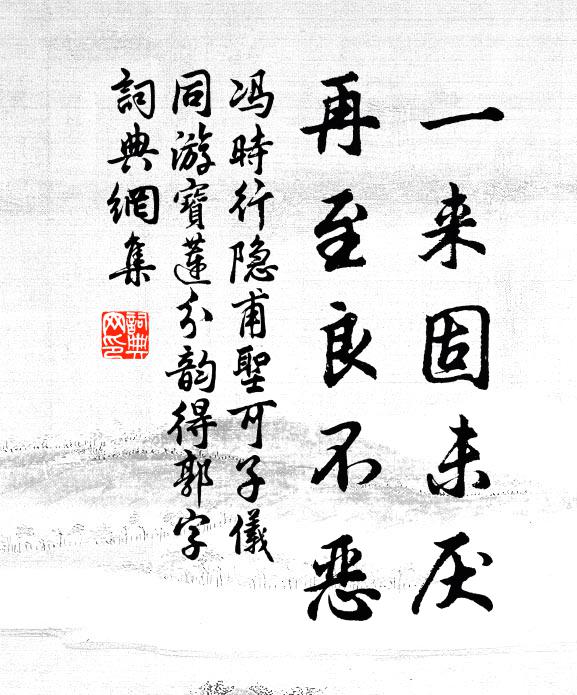 一来固未厌
再至良不恶
冯時行隐甫聖可子儀
同游寶蓮分韵得郭字
詞典網集
詞典
网印